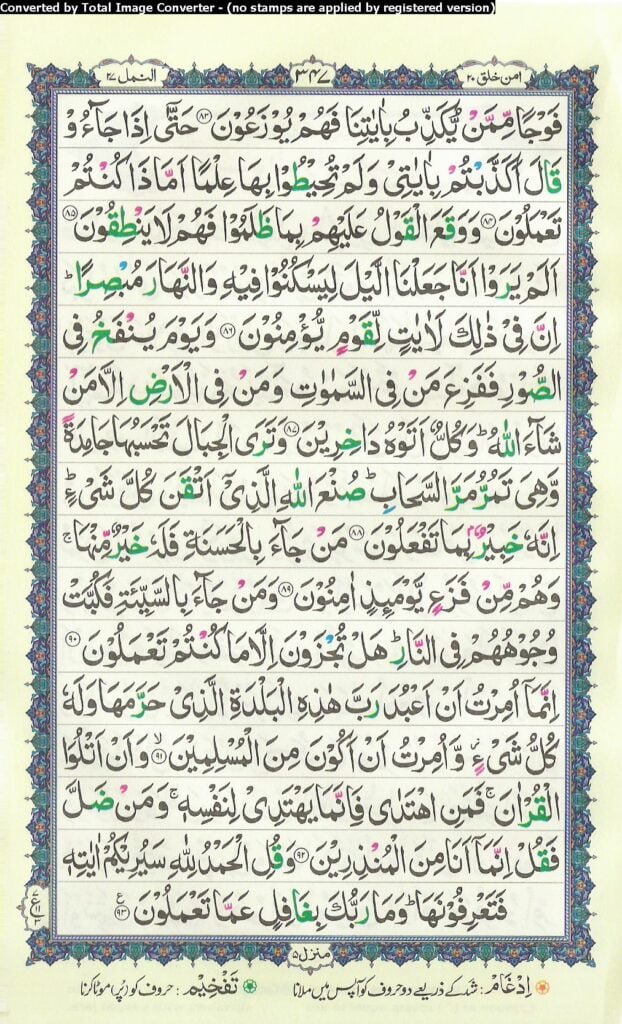 Converted by Total Image Converter - (no stamps are applied by registered version)
امن خلق ٢٠ ٣٤٧ النمل ٢٧
فَوْجًا مِّمَّنْ يُّكَذِّبُ بِاٰيٰتِنَا فَهُمْ يُوْزَعُوْنَ ﴿٨٣﴾ حَتّٰۤى اِذَا جَآءُوْ
قَالَ اَكَذَّبْتُمْ بِاٰيٰتِيْ وَلَمْ تُحِيْطُوْا بِهَا عِلْمًا اَمَّا ذَا كُنْتُمْ
تَعْمَلُوْنَ ﴿٨٤﴾ وَوَقَعَ الْقَوْلُ عَلَيْهِمْ بِمَا ظَلَمُوْا فَهُمْ لَا يَنْطِقُوْنَ ﴿٨٥﴾
اَلَمْ يَرَوْا اَنَّا جَعَلْنَا الَّيْلَ لِيَسْكُنُوْا فِيْهِ وَالنَّهَارَ مُبْصِرًا ؕ
اِنَّ فِيْ ذٰلِكَ لَاٰيٰتٍ لِّقَوْمٍ يُّؤْمِنُوْنَ ﴿٨٦﴾ وَيَوْمَ يُنْفَخُ فِي
الصُّوْرِ فَفَزِعَ مَنْ فِي السَّمٰوٰتِ وَمَنْ فِي الْاَرْضِ اِلَّا مَنْ
شَآءَ اللّٰهُ ؕ وَكُلٌّ اَتَوْهُ دَاخِرِيْنَ ﴿٨٧﴾ وَتَرَى الْجِبَالَ تَحْسَبُهَا جَامِدَةً
وَّهِيَ تَمُرُّ مَرَّ السَّحَابِ ؕ صُنْعَ اللّٰهِ الَّذِيْۤ اَتْقَنَ كُلَّ شَيْءٍ ؕ
اِنَّهٗ خَبِيْرٌۢ بِمَا تَفْعَلُوْنَ ﴿٨٨﴾ مَنْ جَآءَ بِالْحَسَنَةِ فَلَهٗ خَيْرٌ مِّنْهَا ۚ
وَهُمْ مِّنْ فَزَعٍ يَّوْمَئِذٍ اٰمِنُوْنَ ﴿٨٩﴾ وَمَنْ جَآءَ بِالسَّيِّئَةِ فَكُبَّتْ
وُجُوْهُهُمْ فِي النَّارِ ؕ هَلْ تُجْزَوْنَ اِلَّا مَا كُنْتُمْ تَعْمَلُوْنَ ﴿٩٠﴾
اِنَّمَاۤ اُمِرْتُ اَنْ اَعْبُدَ رَبَّ هٰذِهِ الْبَلْدَةِ الَّذِيْ حَرَّمَهَا وَلَهٗ
كُلُّ شَيْءٍ ؗ وَّاُمِرْتُ اَنْ اَكُوْنَ مِنَ الْمُسْلِمِيْنَ ﴿٩١﴾ۙ وَاَنْ اَتْلُوَا
الْقُرْاٰنَ ۚ فَمَنِ اهْتَدٰى فَاِنَّمَا يَهْتَدِيْ لِنَفْسِهٖ ۚ وَمَنْ ضَلَّ
فَقُلْ اِنَّمَاۤ اَنَا مِنَ الْمُنْذِرِيْنَ ﴿٩٢﴾ وَقُلِ الْحَمْدُ لِلّٰهِ سَيُرِيْكُمْ اٰيٰتِهٖ
فَتَعْرِفُوْنَهَا ؕ وَمَا رَبُّكَ بِغَافِلٍ عَمَّا تَعْمَلُوْنَ ﴿٩٣﴾ ع
منزل ٥
اِدْغَام : شد کے ذریعے دو حروف کو آپس میں ملانا تَفْخِيْم : حروف کو (پُر) موٹا کرنا